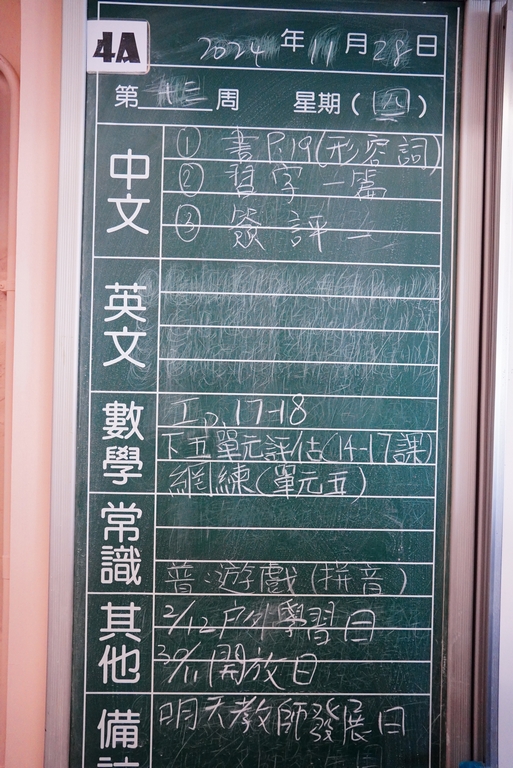 4A
2024年11月28日
第十三周 星期(四)
中文
① 書P.19(形容詞)
② 習字一篇
③ 簽評一
英文
數學
工p.17-18
下五單元評估(14-17課)
網練(單元五)
常識
普:遊戲(拼音)
其他
2/12戶外學習日
30/11開放日
備
明天教師發展日